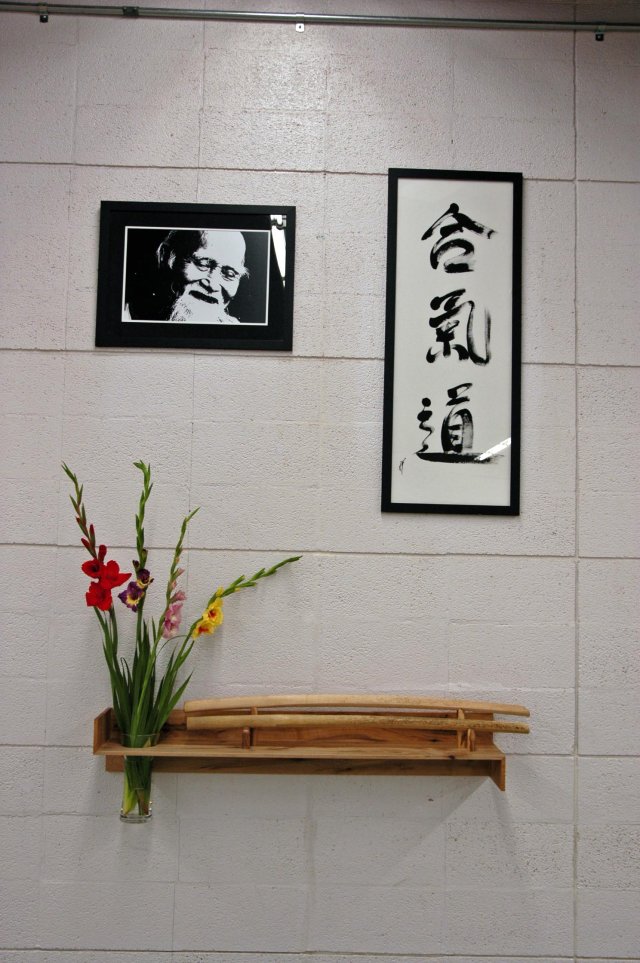 合
氣
道